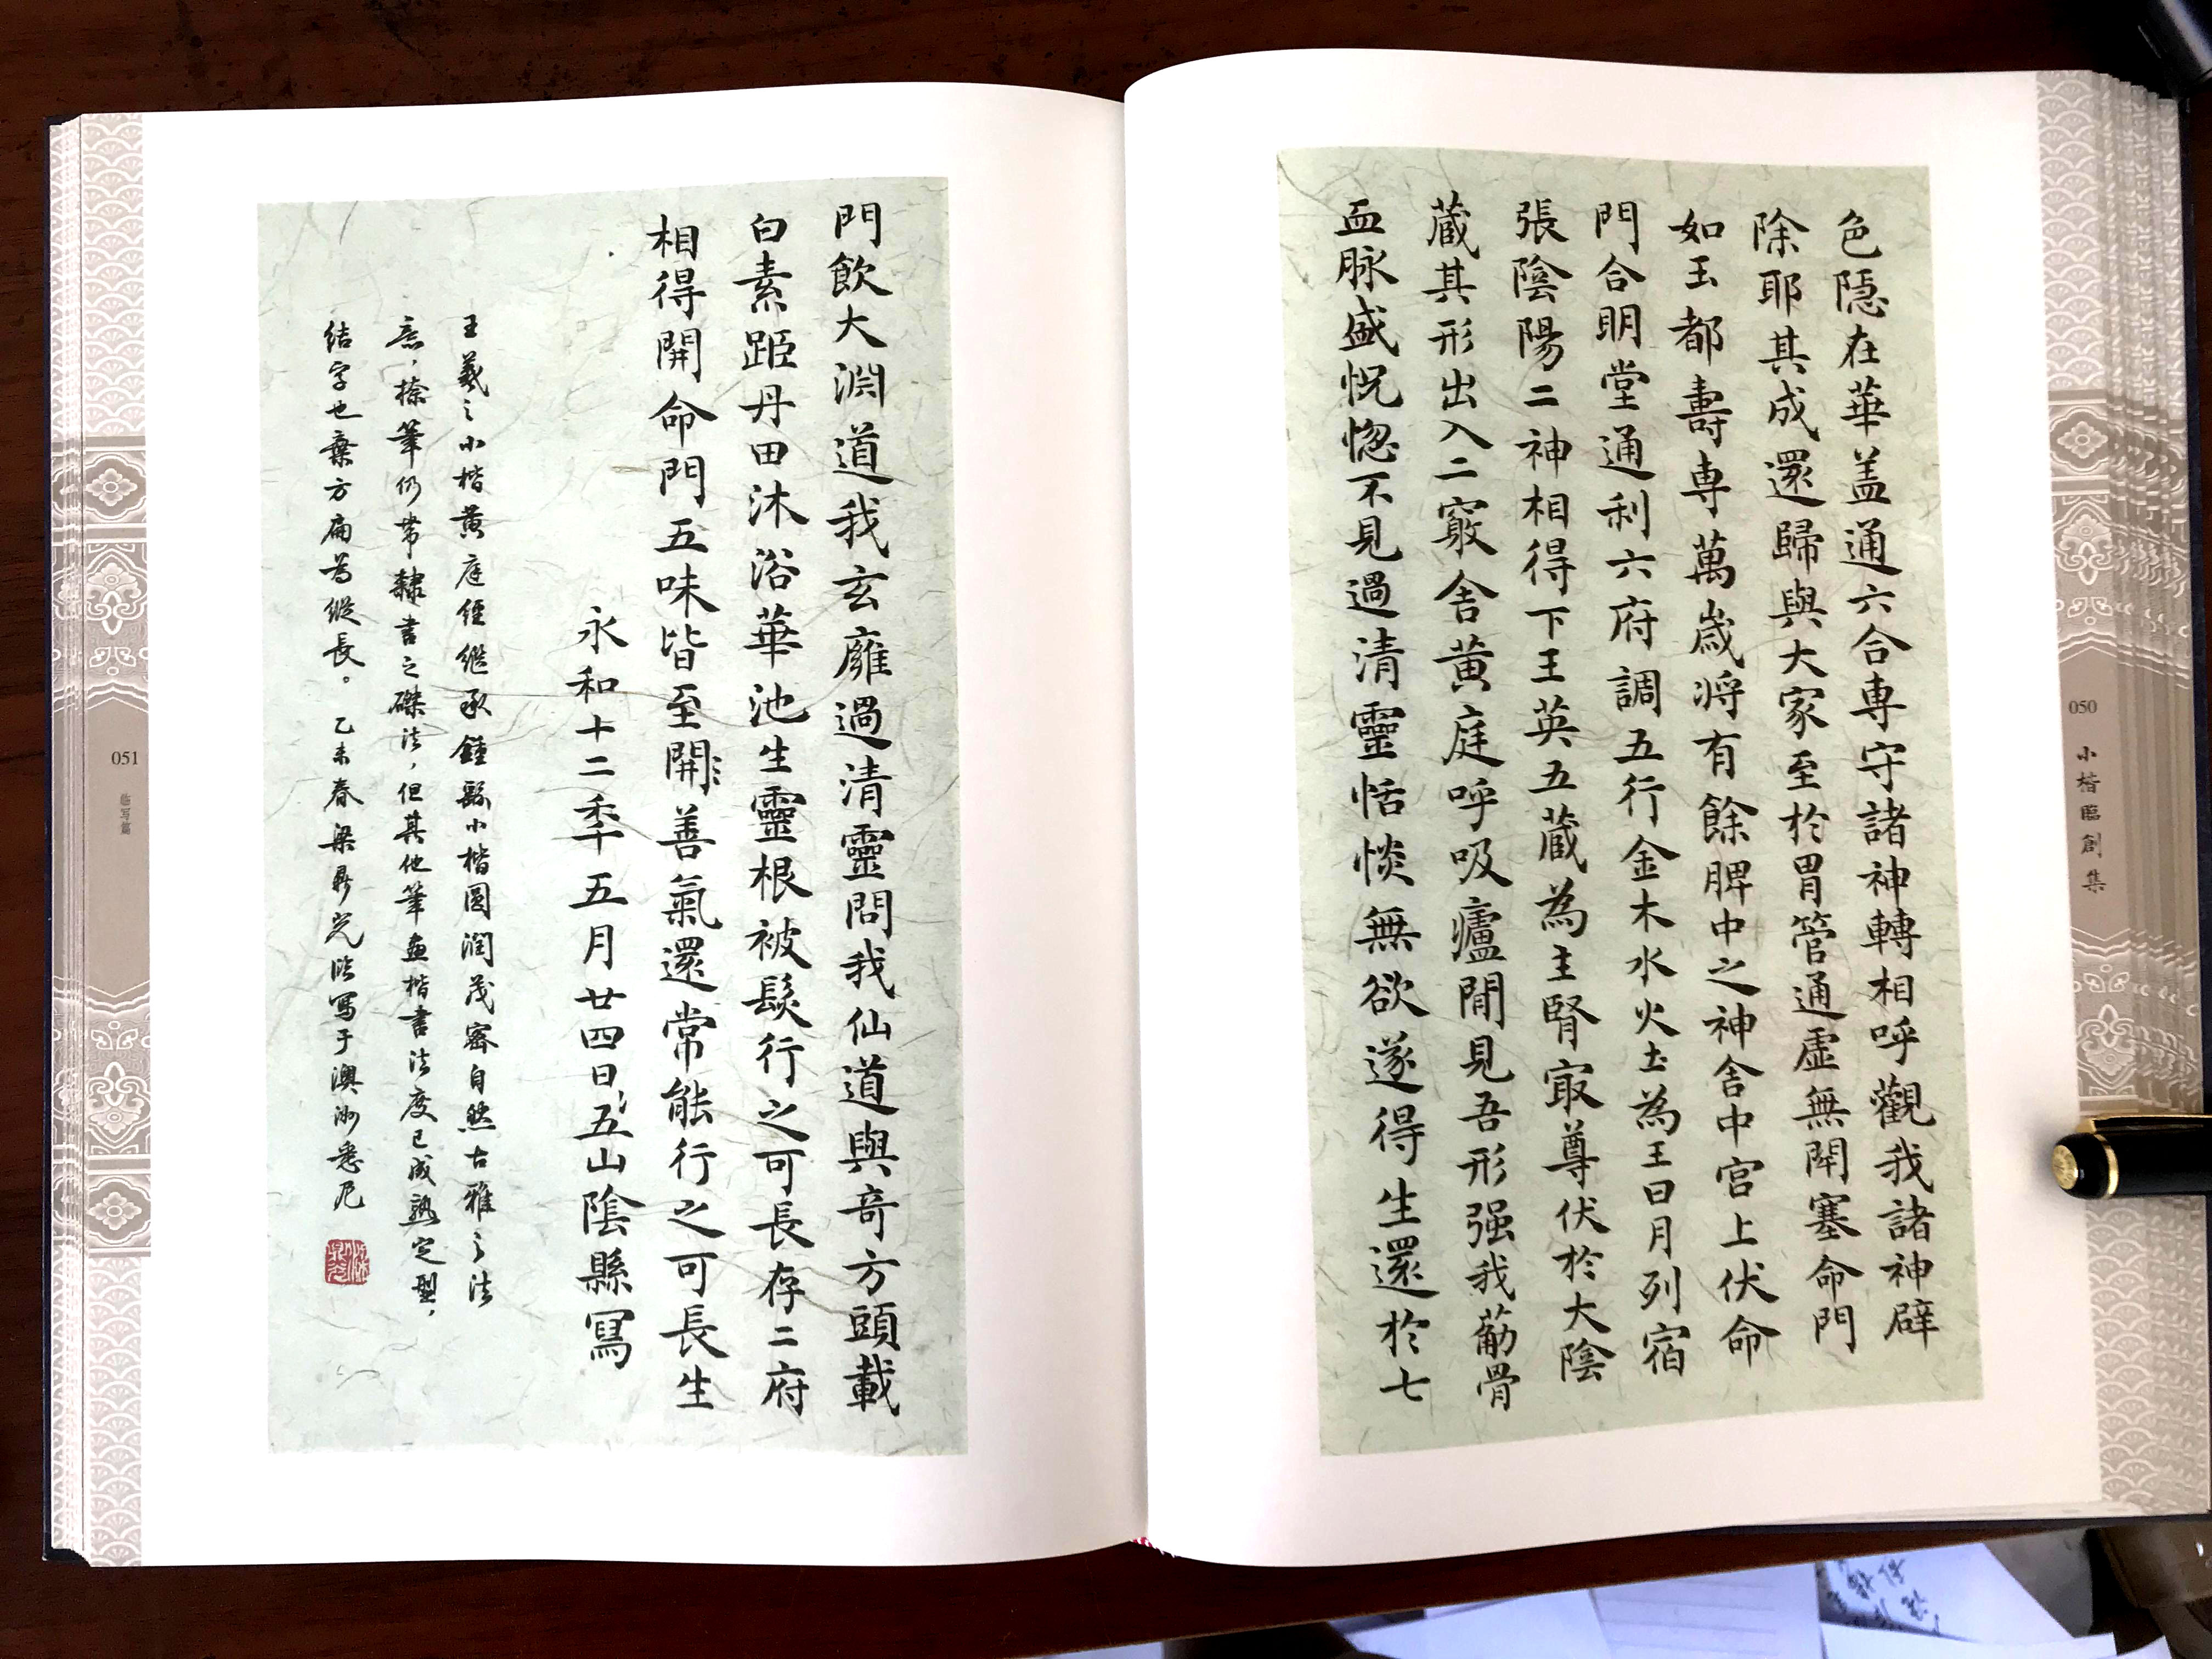 色隱在華盖通六合専守諸神轉相呼觀我諸神辟
除耶其成還歸與大家至於胃管通虛無閇塞命門
如玉都壽専萬歲将有餘脾中之神舍中宮上伏命
門合明堂通利六府調五行金木水火土為王日月列宿
張陰陽二神相得下王英五藏為主腎寂尊伏於大陰
藏其形出入二竅舍黄庭呼吸廬間見吾形强我筋骨
血脉盛怳惚不見過清靈恬惔無欲遂得生還於七
050
小楷臨創集
門飲大淵道我玄雍過清靈問我仙道與奇方頭載
白素距丹田沐浴華池生靈根被髮行之可長存二府
相得開命門五味皆至開善氣還常能行之可長生
永和十二秊五月廿四日五山陰縣寫
王羲之小楷黄庭经继承鍾繇小楷圆润茂密自然古雅之法
意，捺筆仍带隸書之磔法，但其他筆画楷書法度已成熟定型，
结字也棄方扁為縱長。乙未春梁鼎光临写于澳洲悉尼
051
临写篇